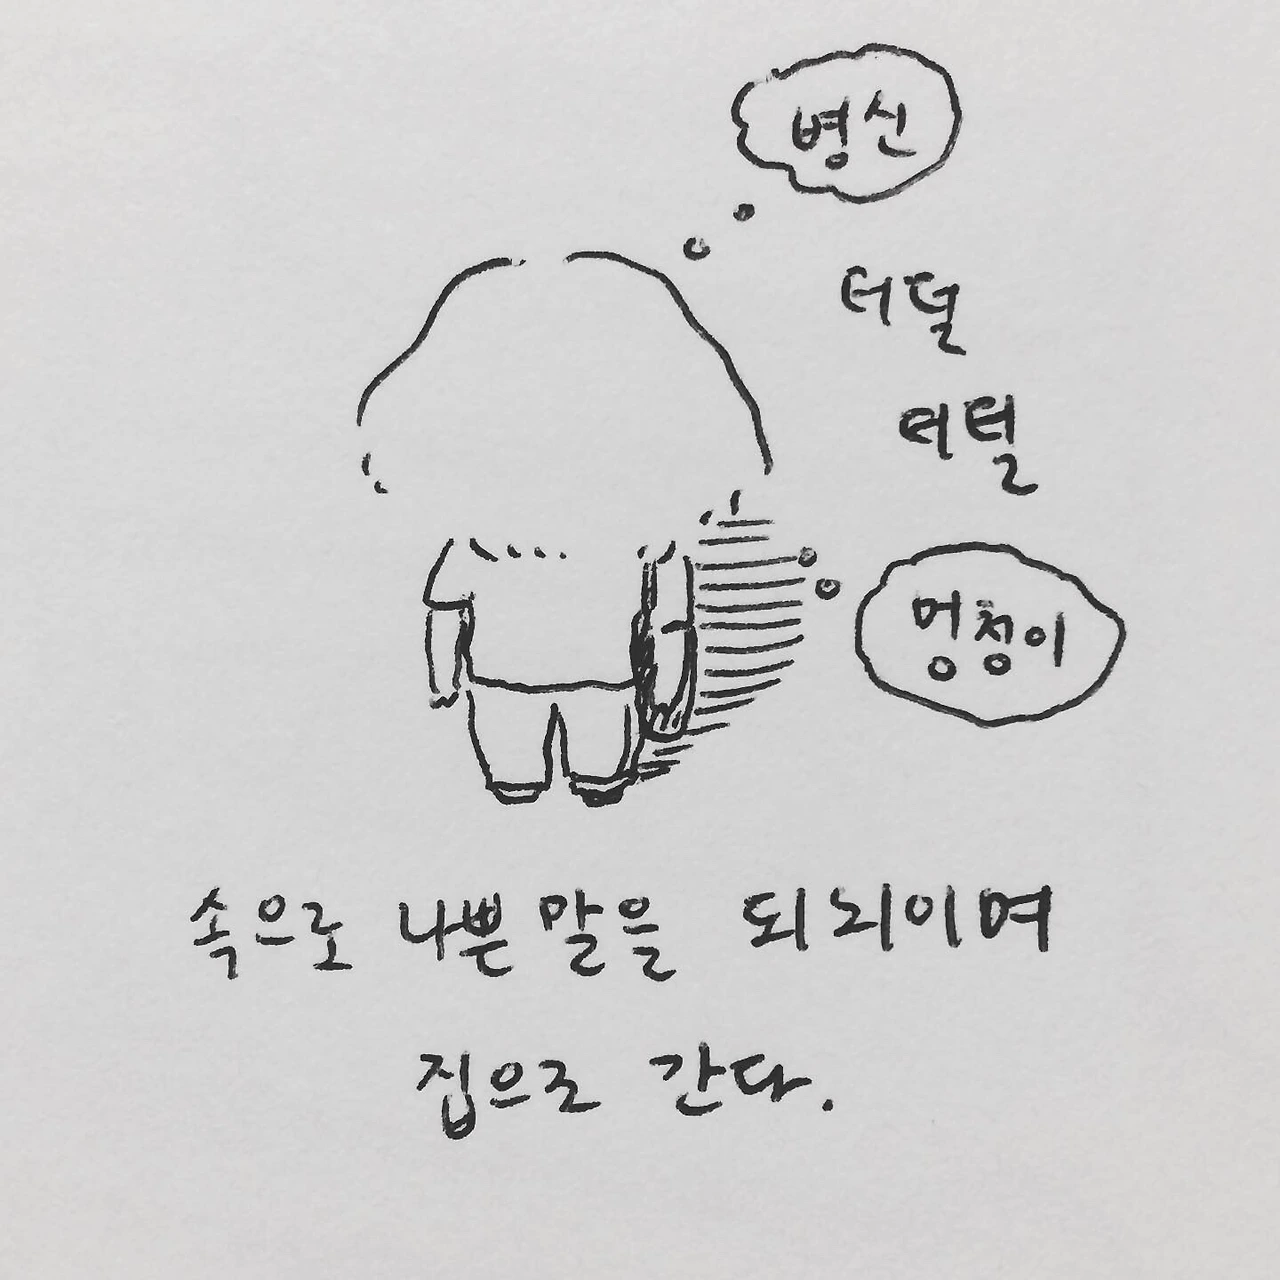 병신
터덜
터덜
멍청이
속으로 나쁜 말을 되뇌이며
집으로 간다.